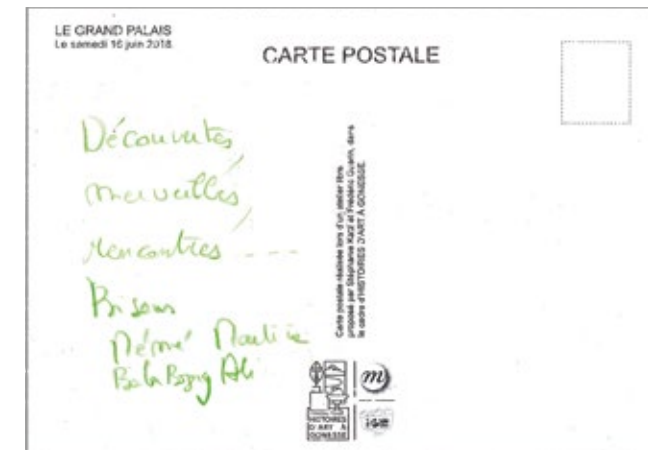 LE GRAND PALAIS
Le samedi 16 juin 2018
CARTE POSTALE
Découvertes,
merveilles,
rencontres ----
Bisous
Mémé Martine
Ali
Carte postale réalisée lors d'un atelier libre
proposé par Stéphanie Katz et Frédéric Guerin, dans
le cadre d'HISTOIRES D'ART A GONESSE.
m
HISTOIRES
D'ART A
GONESSE